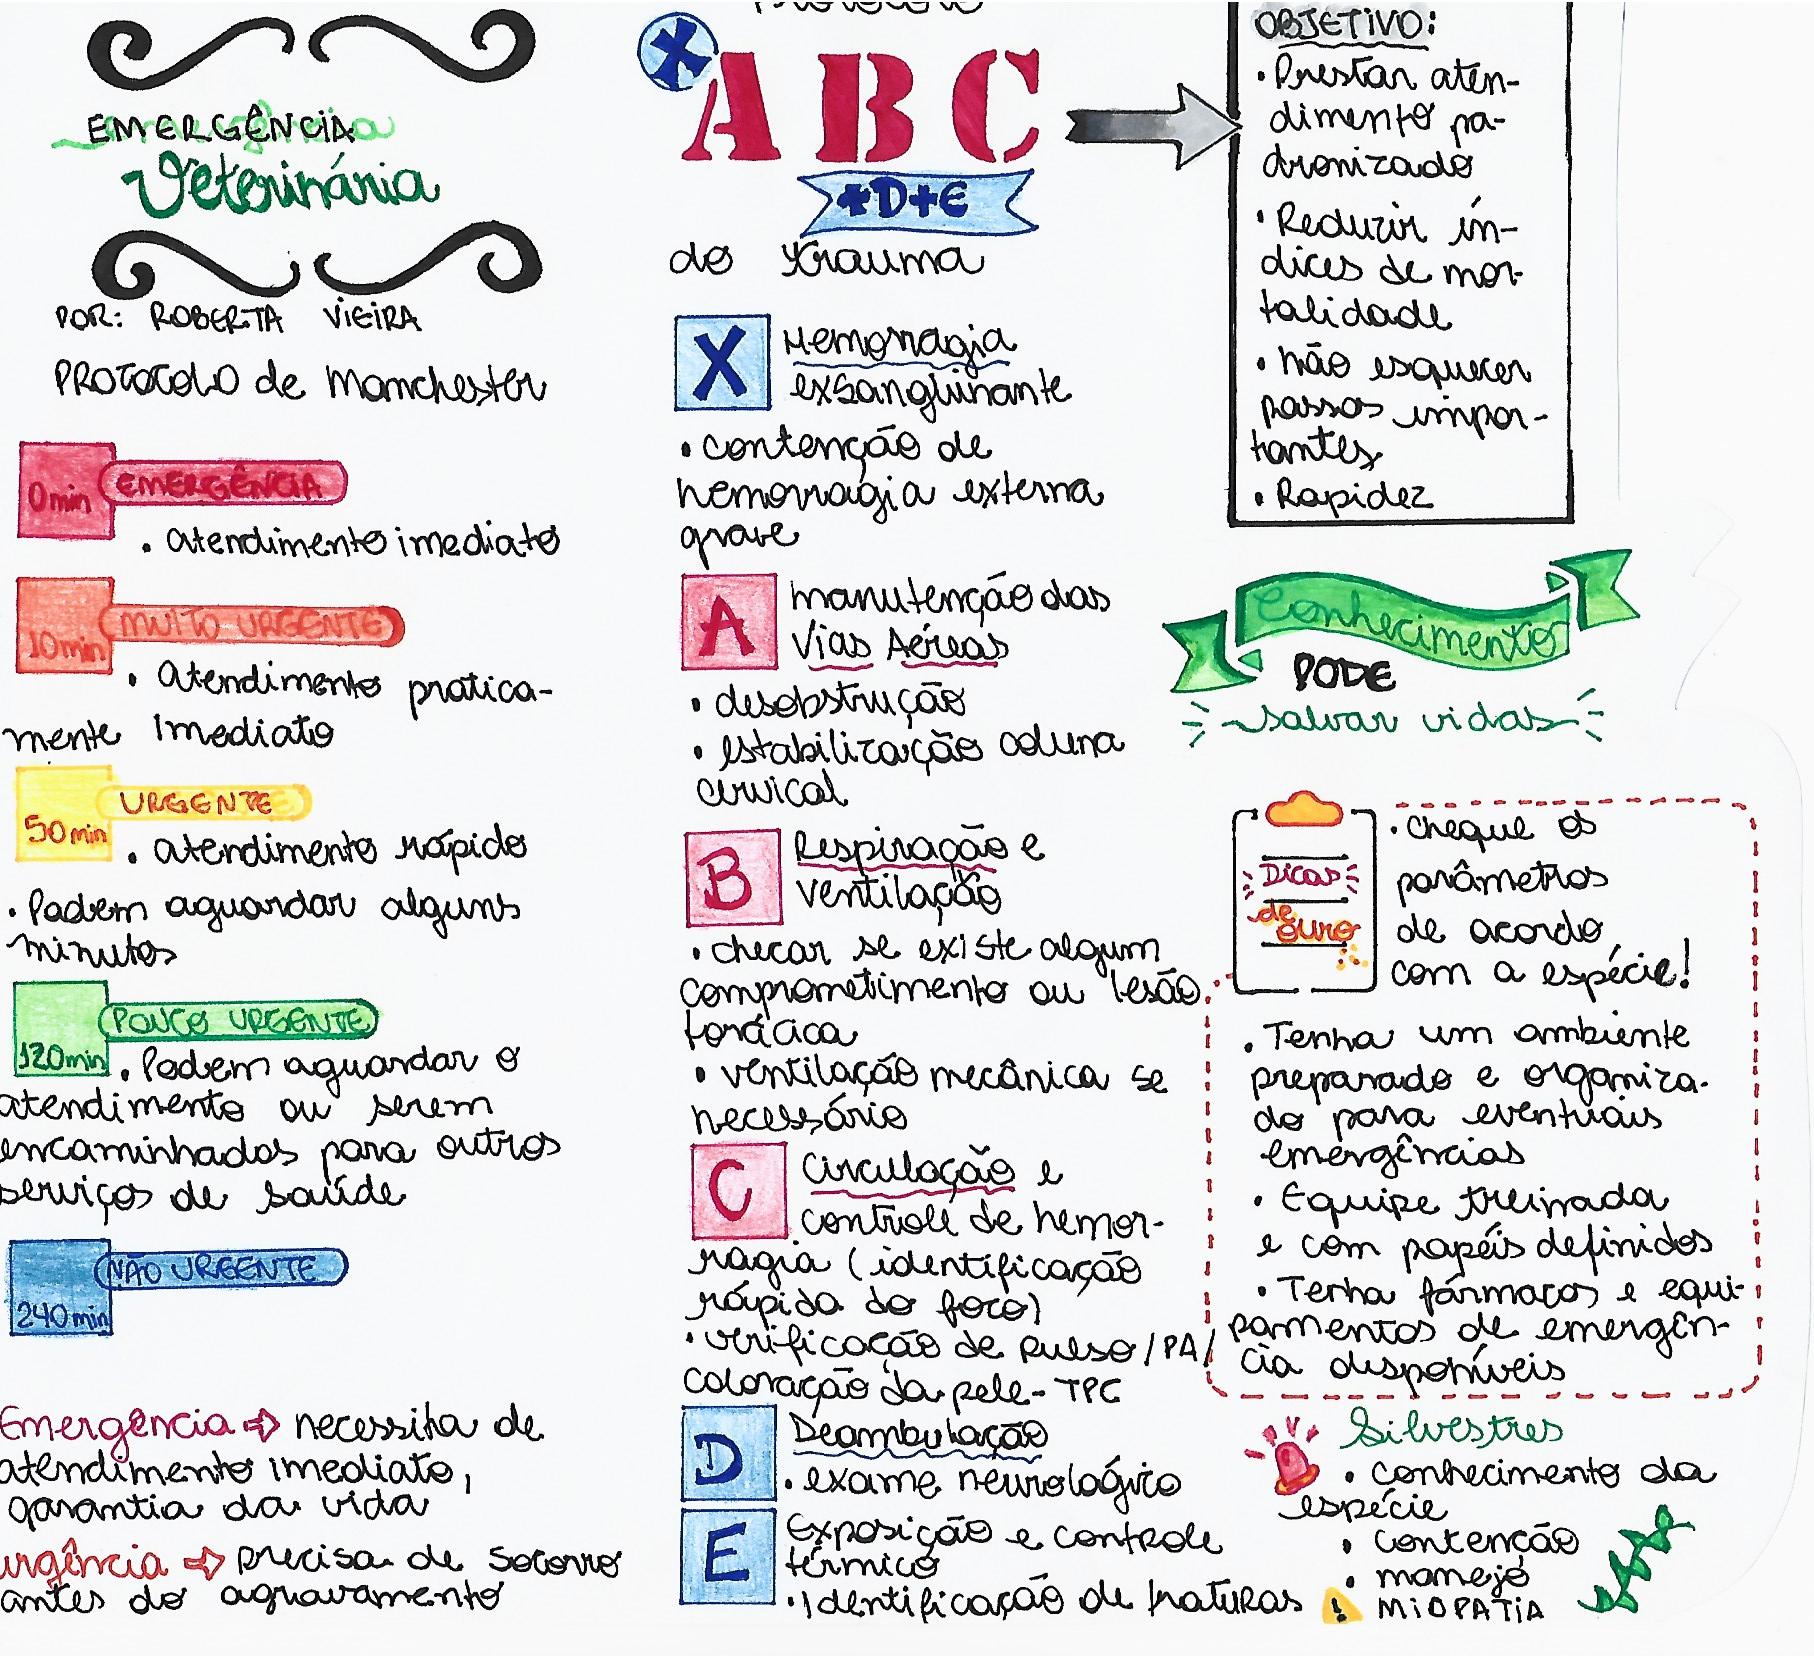 EMERGÊNCIA
Veterinária
POR: ROBERTA VIEIRA
PROTOCOLO de Manchester
0min EMERGÊNCIA
• Atendimento imediato
10min MUITO URGENTE
• Atendimento pratica-
mente Imediato
50min URGENTE
• Atendimento rápido
• Podem aguardar alguns
minutos
120min POUCO URGENTE
• Podem aguardar o
atendimento ou serem
encaminhados para outros
serviços de saúde
240min NÃO URGENTE
Emergência ⇨ necessita de
atendimento imediato,
garantia da vida
urgência ⇨ precisa de socorro
antes do agravamento
X ABC
+D+E
do trauma
X Hemorragia
exsanguinante
• contenção de
hemorragia externa
grave
A manutenção das
Vias Aéreas
• desobstrução
• estabilização coluna
cervical
B Respiração e
ventilação
• checar se existe algum
comprometimento ou lesão
torácica
• ventilação mecânica se
necessário
C Circulação e
controle de hemor-
ragia (identificação
rápida do foco)
• verificação de pulso/PA/
coloração da pele - TPC
D Deambulação
• exame neurológico
E Exposição e controle
térmico
• Identificação de fraturas
OBJETIVO:
• Prestar aten-
dimento pa-
dronizado
• Reduzir ín-
dices de mor-
talidade
• não esquecer
passos impor-
tantes
• Rapidez
Conhecimento
PODE
salvar vidas
Dicas
de
ouro
• cheque os
parâmetros
de acordo
com a espécie!
• Tenha um ambiente
preparado e organiza-
do para eventuais
emergências
• Equipe treinada
e com papéis definidos
• Tenha fármacos e equi-
pamentos de emergên-
cia disponíveis
Silvestres
• conhecimento da
espécie
• contenção
• manejo
! MIOPATIA